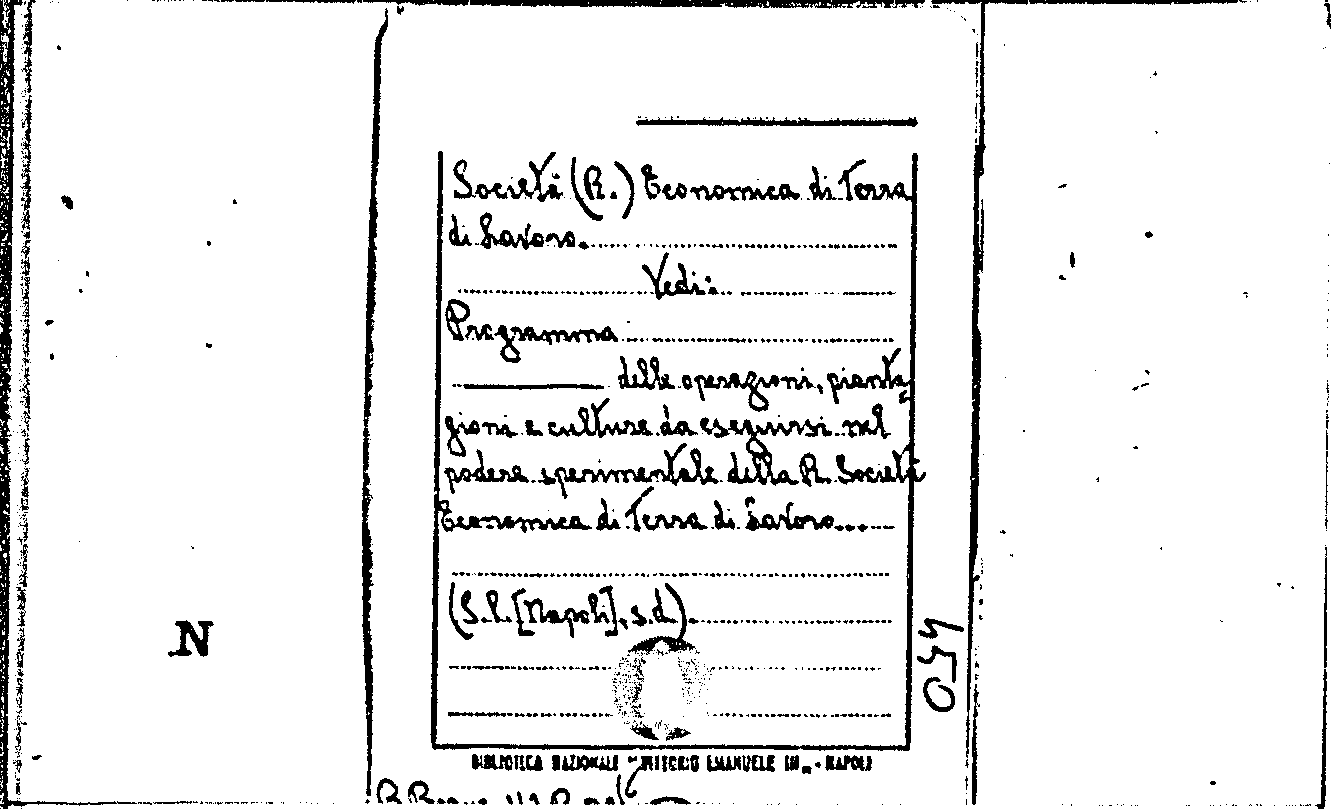 Società (R.) Economica di Terra
di Lavoro.
Vedi:
Programma
delle operazioni, pianta=
gioni e culture da eseguirsi nel
podere sperimentale della R. Società
Economica di Terra di Lavoro...
(S.l. [Napoli], s.d.).
N
BIBLIOTECA NAZIONALE "VITTORIO EMANUELE III" - NAPOLI